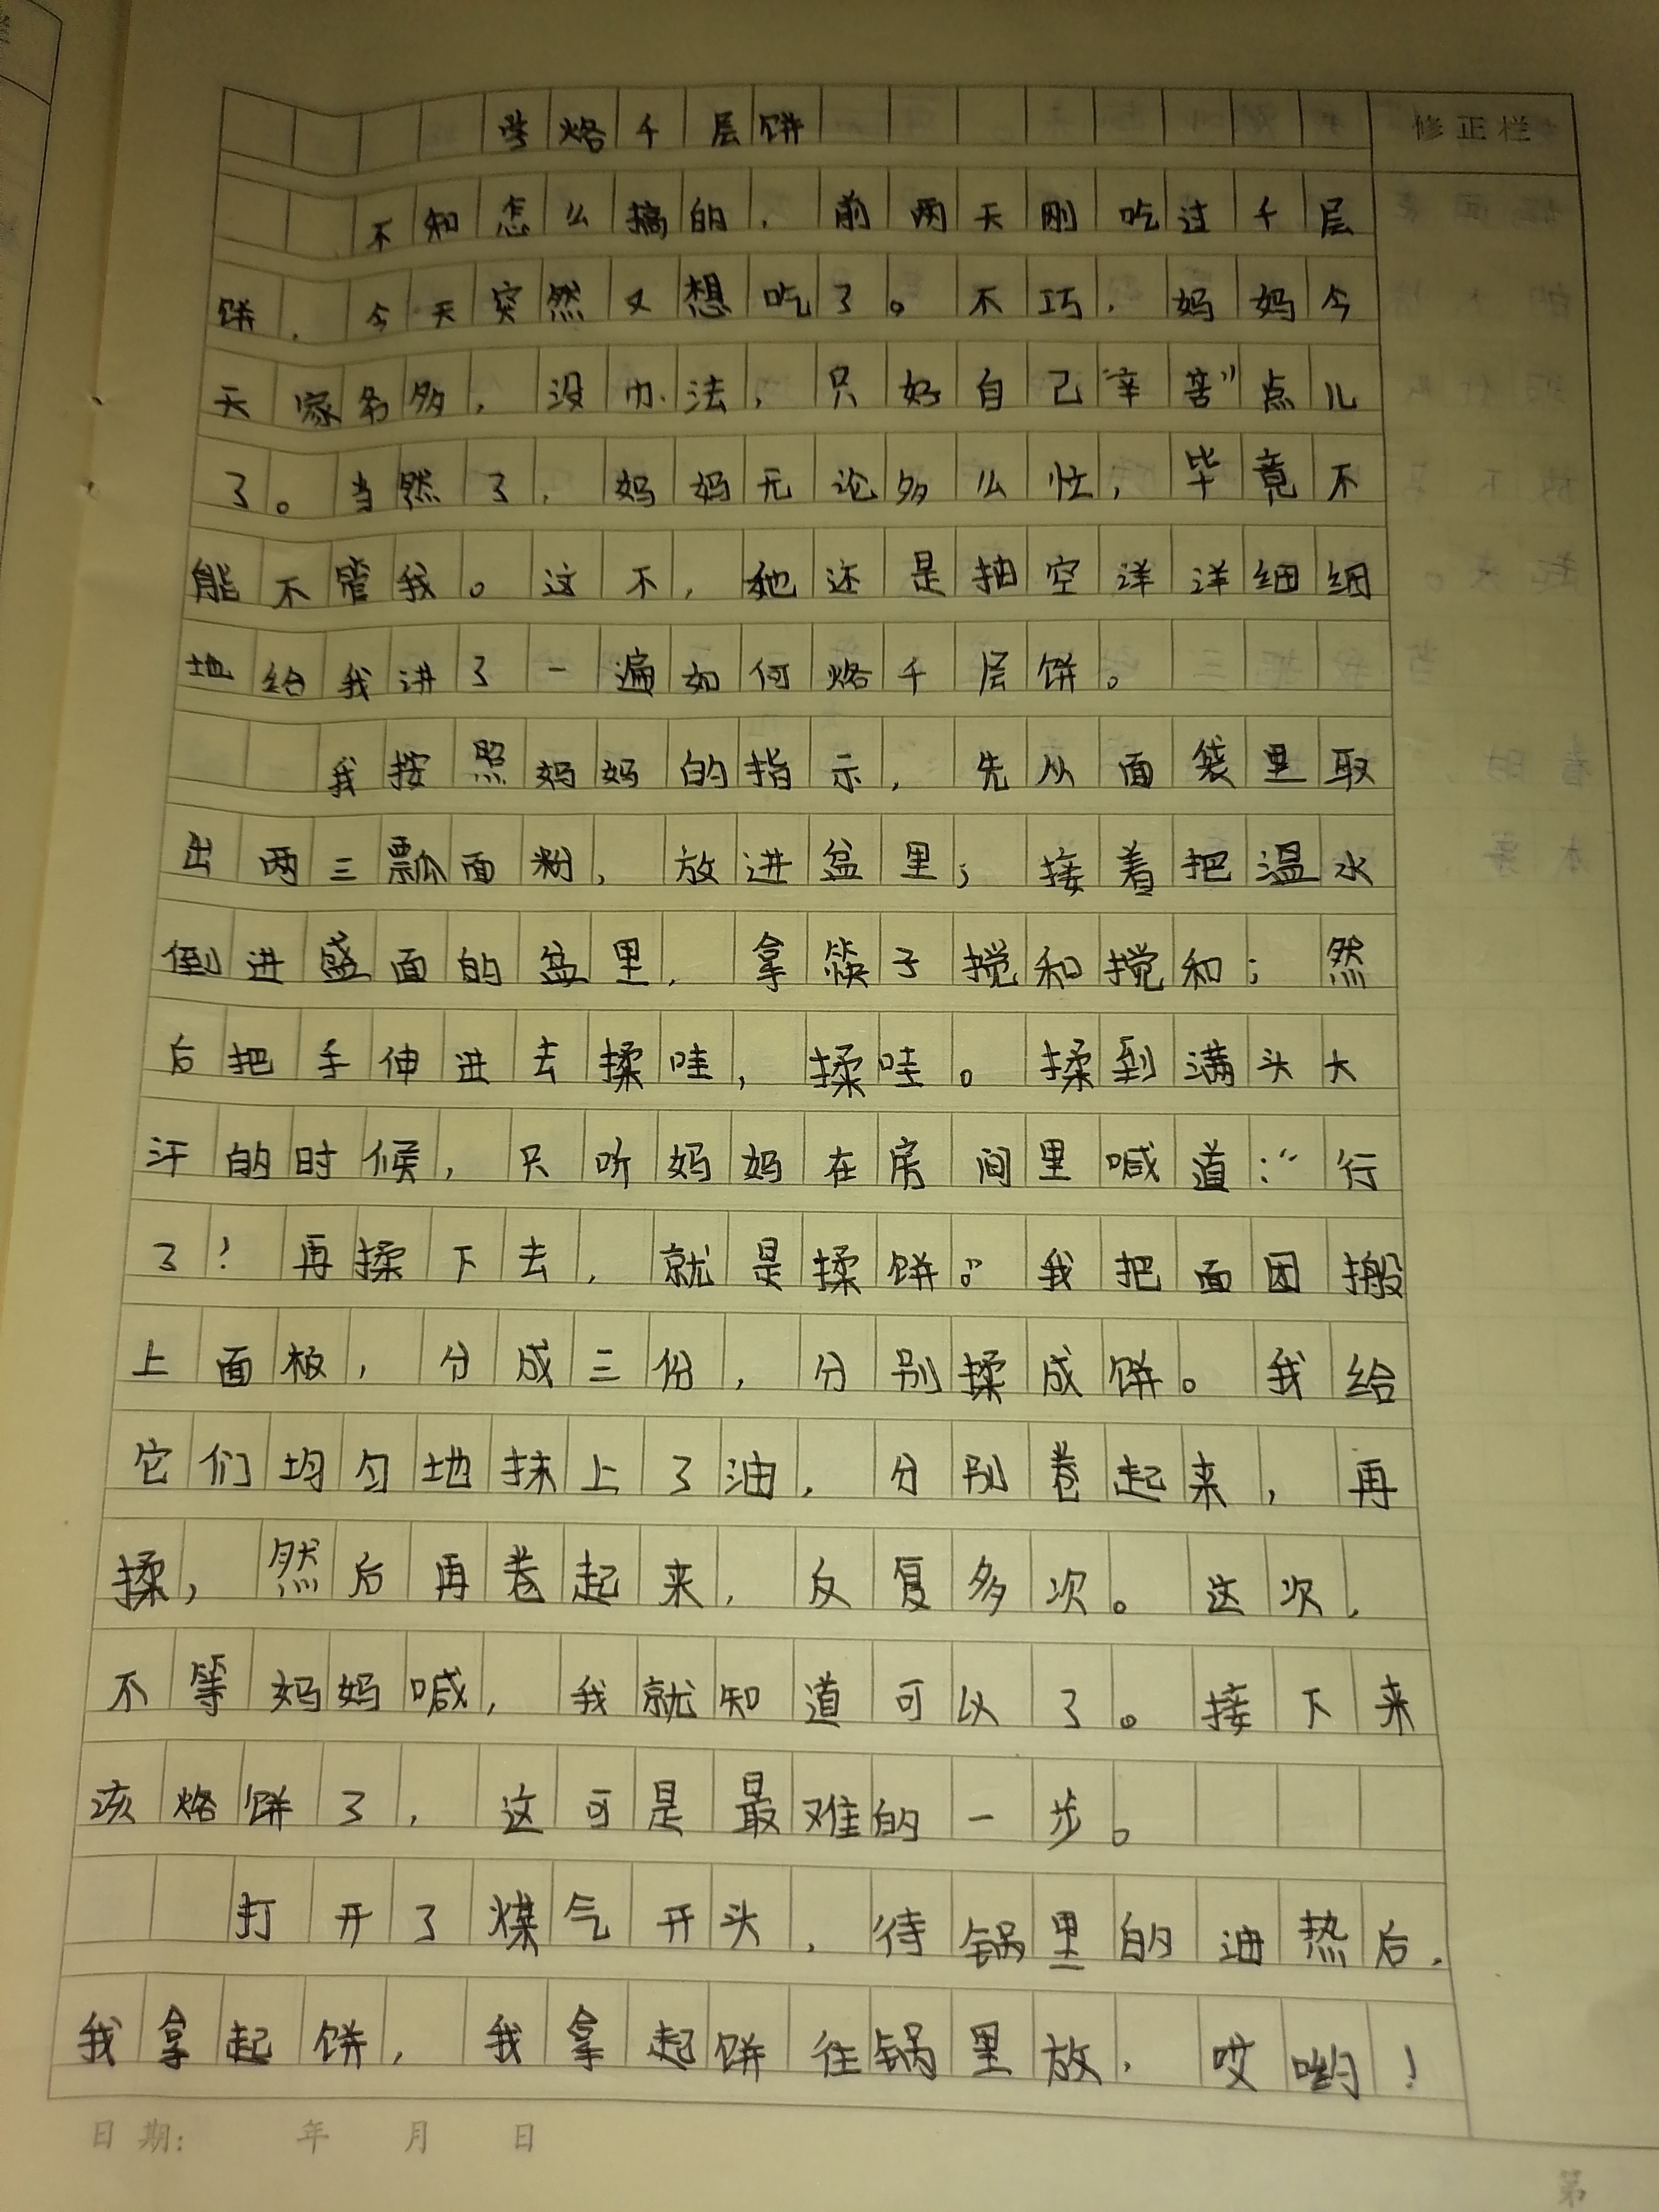 学烙千层饼
修正栏
不知怎么搞的，前两天刚吃过千层
饼，今天突然又想吃了。不巧，妈妈今
天家务多，没办法，只好自己“辛苦”点儿
了。当然了，妈妈无论多么忙，毕竟不
能不管我。这不，她还是抽空详详细细
地给我讲了一遍如何烙千层饼。
我按照妈妈的指示，先从面袋里取
出两三瓢面粉，放进盆里；接着把温水
倒进盛面的盆里，拿筷子搅和搅和；然
后把手伸进去揉哇，揉哇。揉到满头大
汗的时候，只听妈妈在房间里喊道：“行
了！再揉下去，就是揉饼。”我把面团搬
上面板，分成三份，分别揉成饼。我给
它们均匀地抹上了油，分别卷起来，再
揉，然后再卷起来，反复多次。这次，
不等妈妈喊，我就知道可以了。接下来
该烙饼了，这可是最难的一步。
打开了煤气开头，待锅里的油热后，
我拿起饼，我拿起饼往锅里放，哎哟！
日期： 年 月 日
第